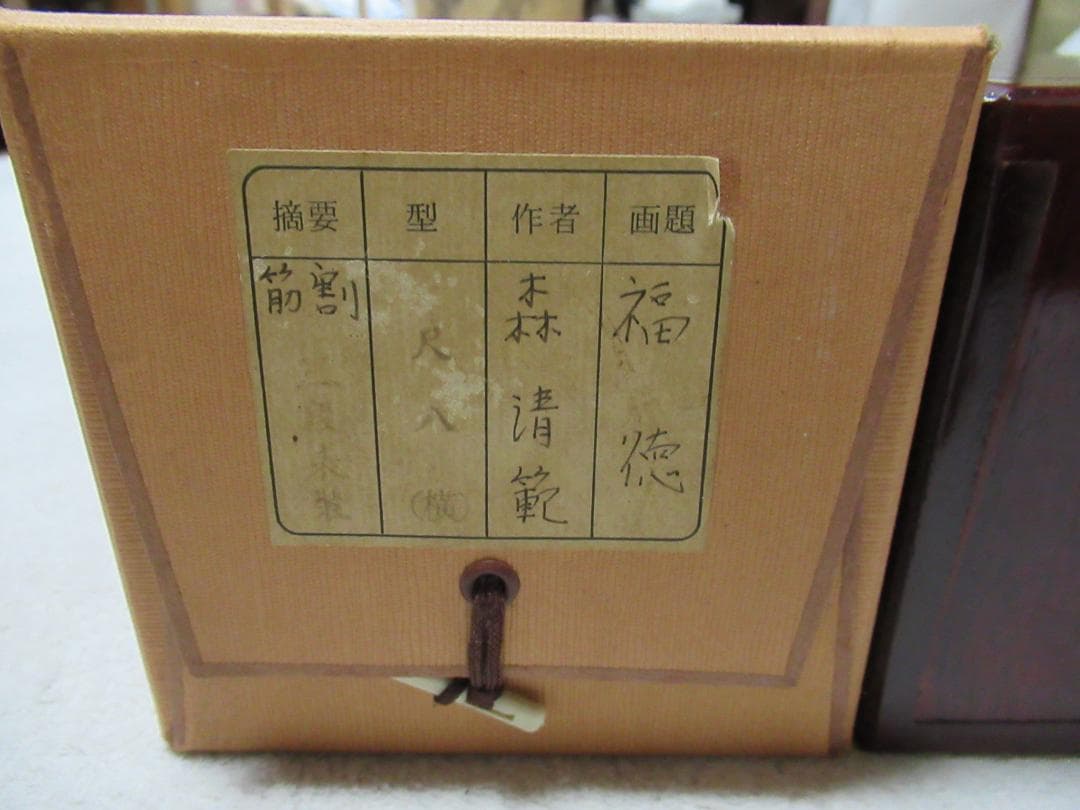 画題
福徳
作者
森清範
型
尺八(横)
摘要
割
筋